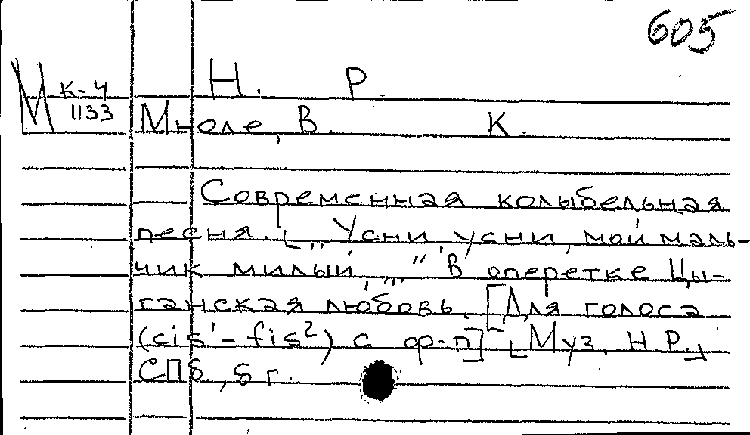 605
Н. Р.
М К-4
1133
Мноле, В. К.
Современная колыбельная
песня. [„Усни, усни, мой маль-
чик милый,„" В оперетке Цы-
ганская любовь. [Для голоса
(cis¹-fis²) с ф-п] [Муз. Н.Р.]
СПб, б г.